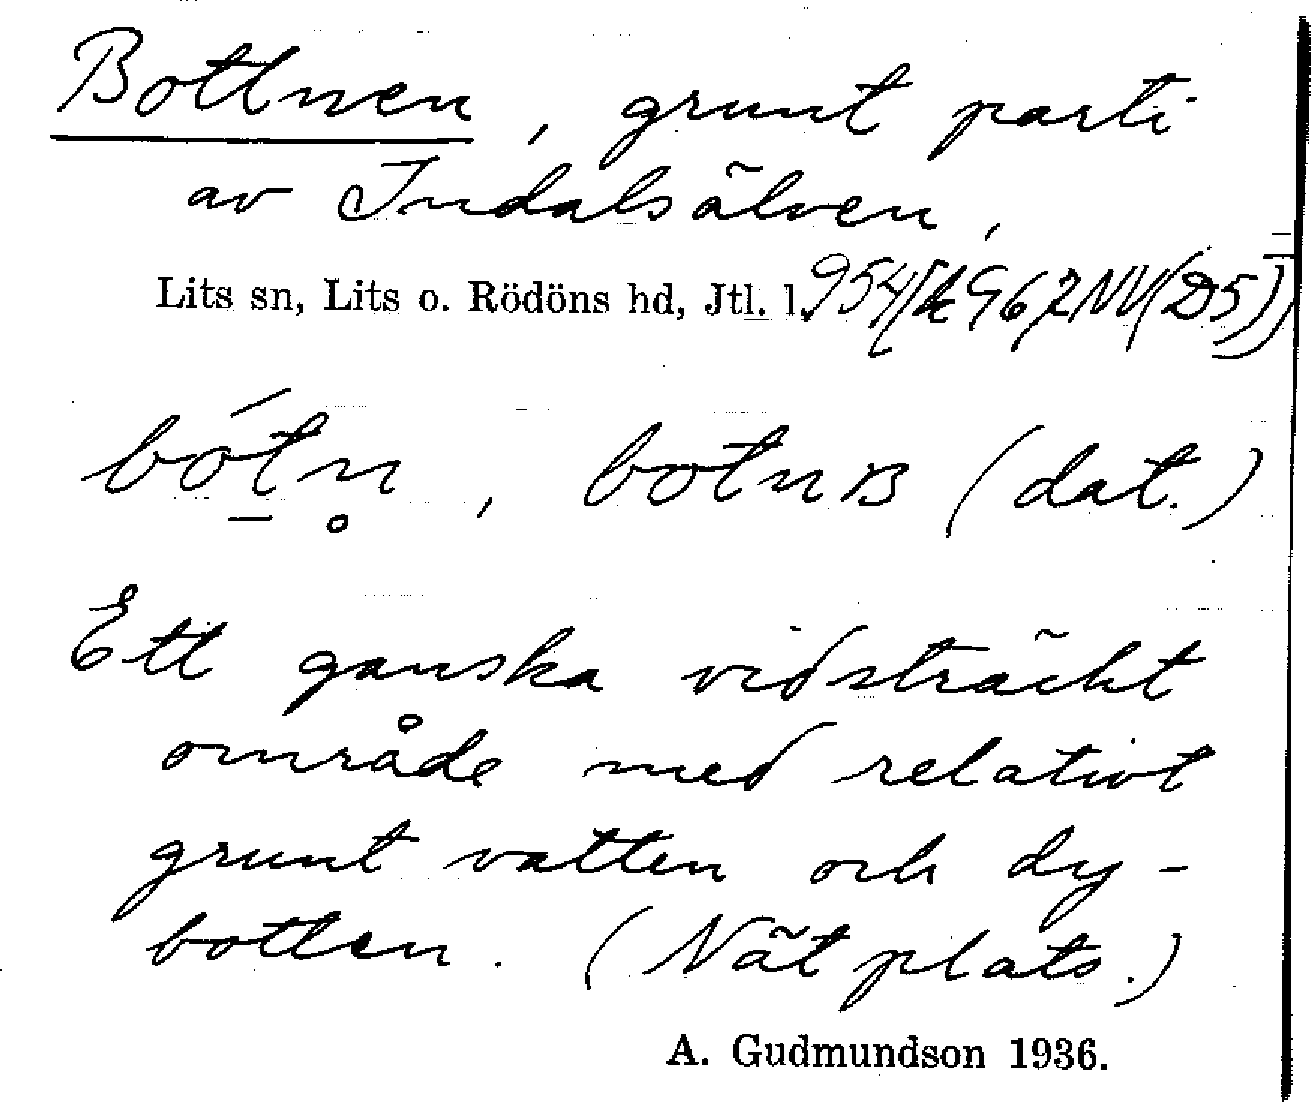 Bottnen, grunt parti
av Indalsälven,
Lits sn, Lits o. Rödöns hd, Jtl. l.
bótn̥, botnʙ (dat.)
Ett ganska vidsträckt
område med relativt
grunt vatten och dy-
botten. (Nätplats.)
A. Gudmundson 1936.